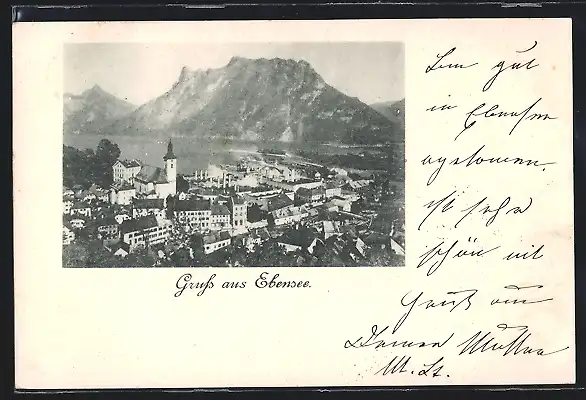 Gruß aus Ebensee.
bin gut
in Ebensee
angekommen.
ist sehr
schön mit
Gruß an
Deinen Mutter
M. L.